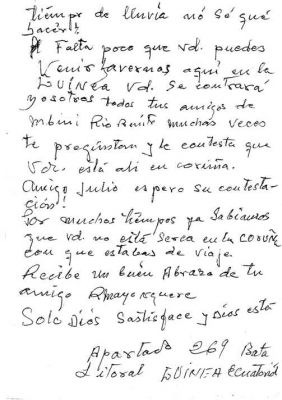 tiempo de lluvia nó Sé qué
hacer!!
Falta poco que vd. puedes
Venir havernos aquí en la
GUÍNEA vd. Se contrará
y nosotros todos tus amigos de
mbini Rio Benito muchas veces
te pregúntan y le contesta que
Vd. está ahí en coruña.
Amigo Julio espero su contesta-
ción!!
Por muchos tiempos ya Sabíamos
que vd. no está Serca en la CORUÑA
con que estabas de viaje
Recibe un buén Abrazo de tu
amigo
Solo Díos Sastisface y Díos está
Apartado 269 Bata
Litoral GUÍNEA Ecuatorial